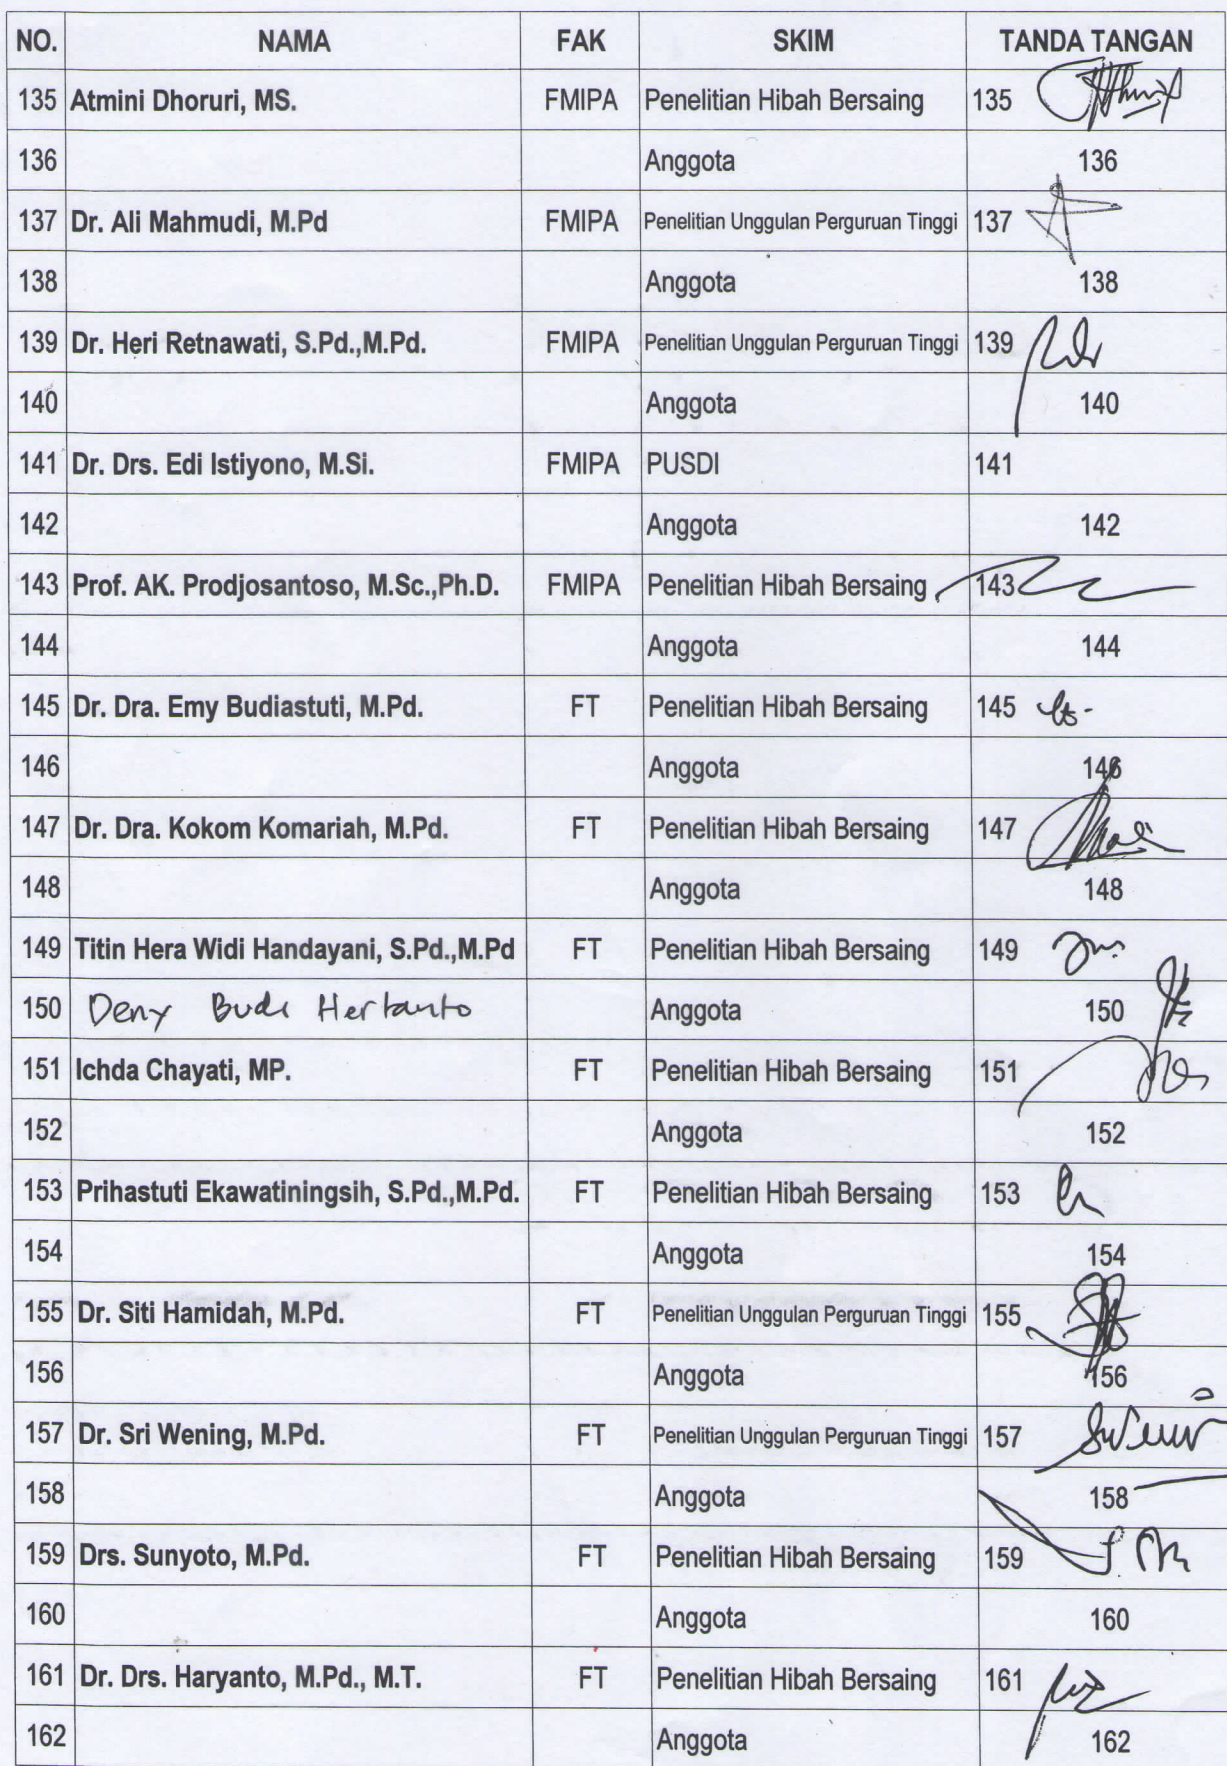 NO. NAMA FAK SKIM TANDA TANGAN
135 Atmini Dhoruri, MS. FMIPA Penelitian Hibah Bersaing 135
136 Anggota 136
137 Dr. Ali Mahmudi, M.Pd FMIPA Penelitian Unggulan Perguruan Tinggi 137
138 Anggota 138
139 Dr. Heri Retnawati, S.Pd.,M.Pd. FMIPA Penelitian Unggulan Perguruan Tinggi 139
140 Anggota 140
141 Dr. Drs. Edi Istiyono, M.Si. FMIPA PUSDI 141
142 Anggota 142
143 Prof. AK. Prodjosantoso, M.Sc.,Ph.D. FMIPA Penelitian Hibah Bersaing 143
144 Anggota 144
145 Dr. Dra. Emy Budiastuti, M.Pd. FT Penelitian Hibah Bersaing 145
146 Anggota 146
147 Dr. Dra. Kokom Komariah, M.Pd. FT Penelitian Hibah Bersaing 147
148 Anggota 148
149 Titin Hera Widi Handayani, S.Pd.,M.Pd FT Penelitian Hibah Bersaing 149
150 Deny Budi Hertanto Anggota 150
151 Ichda Chayati, MP. FT Penelitian Hibah Bersaing 151
152 Anggota 152
153 Prihastuti Ekawatiningsih, S.Pd.,M.Pd. FT Penelitian Hibah Bersaing 153
154 Anggota 154
155 Dr. Siti Hamidah, M.Pd. FT Penelitian Unggulan Perguruan Tinggi 155
156 Anggota 156
157 Dr. Sri Wening, M.Pd. FT Penelitian Unggulan Perguruan Tinggi 157
158 Anggota 158
159 Drs. Sunyoto, M.Pd. FT Penelitian Hibah Bersaing 159
160 Anggota 160
161 Dr. Drs. Haryanto, M.Pd., M.T. FT Penelitian Hibah Bersaing 161
162 Anggota 162